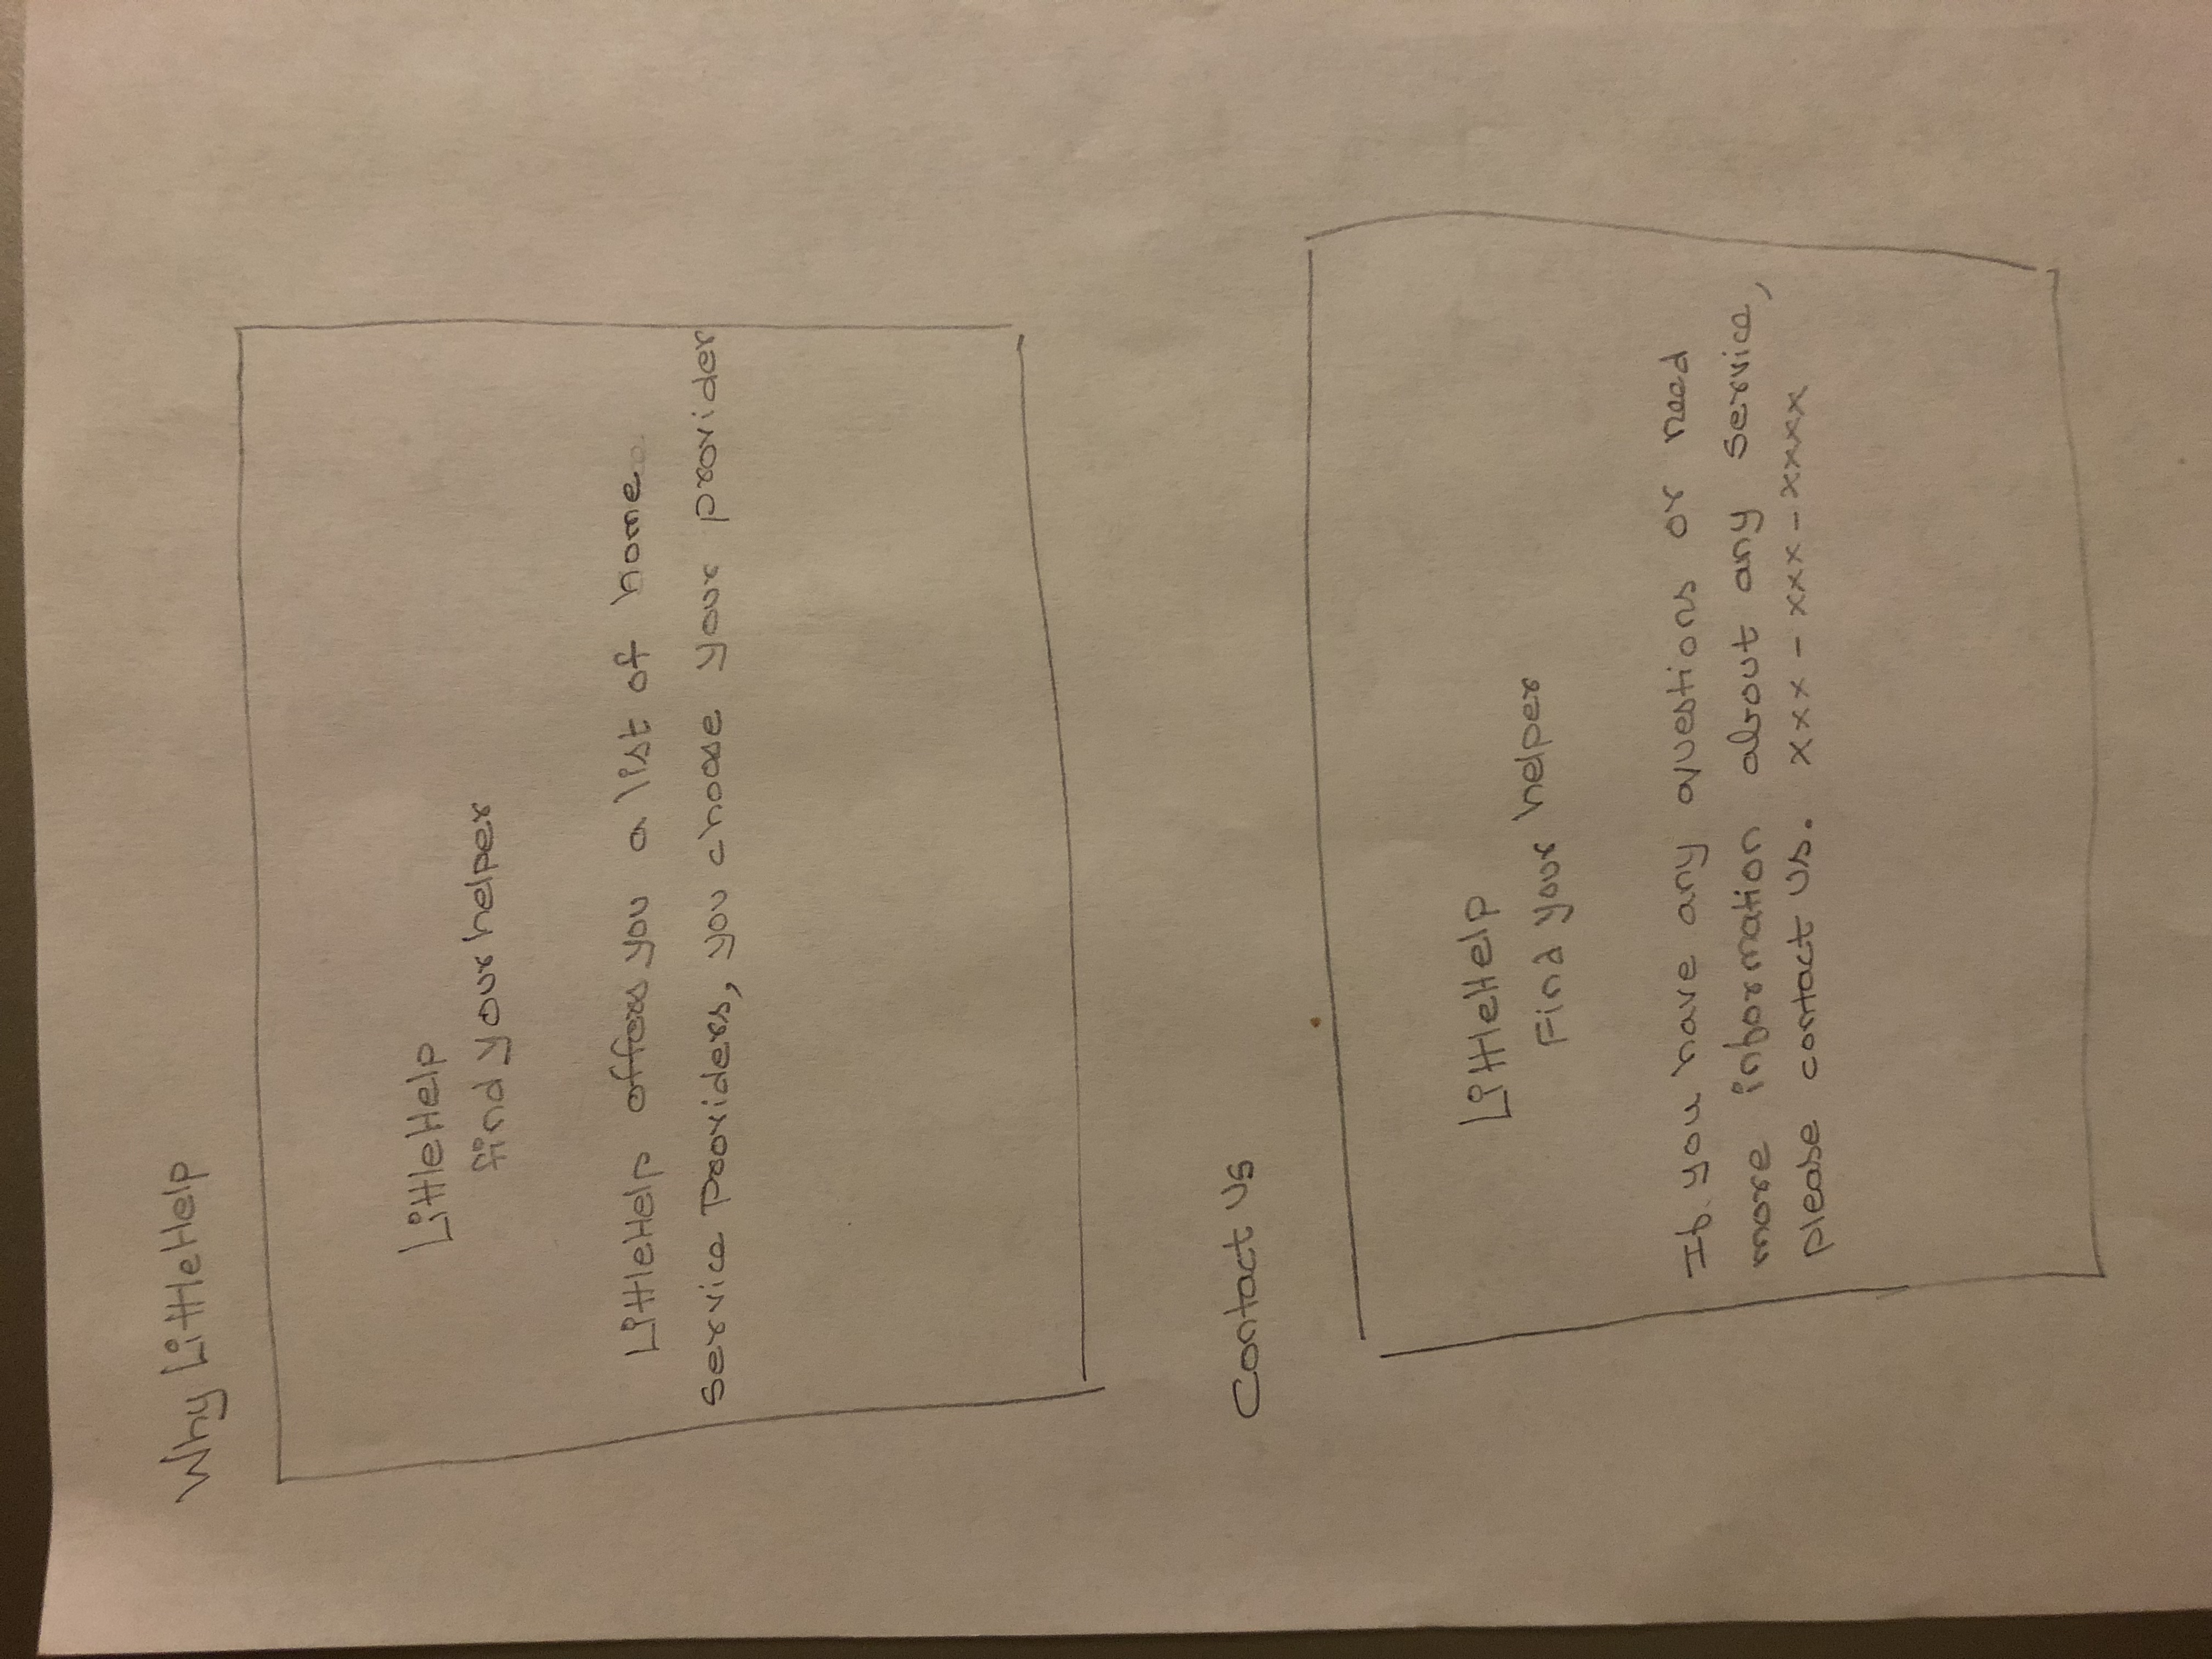 Why LittleHelp
LittleHelp
find your helper
LittleHelp offers you a list of home
Service Providers, you choose your provider
Contact Us
LittleHelp
Find your helper
If you have any questions or need
more information about any service,
please contact us. xxx - xxx - xxxx